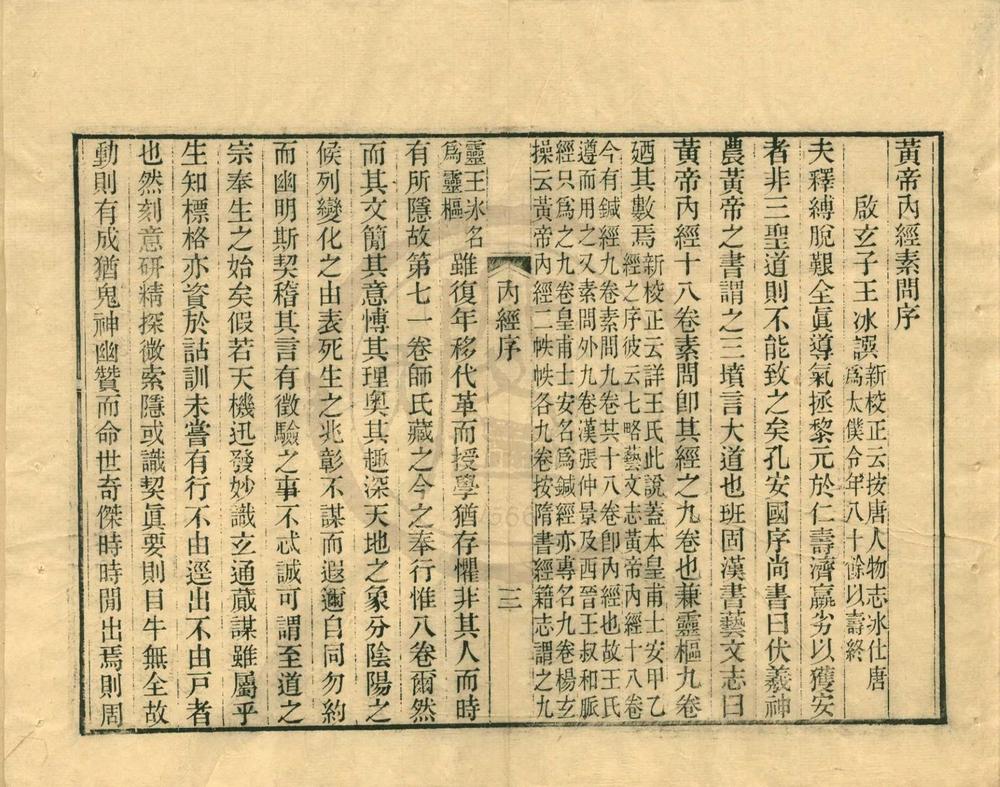 黃帝內經素問序
啟玄子王冰譔新校正云按唐人物志冰仕唐
爲太僕令年八十餘以壽終
夫釋縛脫艱全眞導氣拯黎元於仁壽濟羸劣以獲安
者非三聖道則不能致之矣孔安國序尚書曰伏羲神
農黃帝之書謂之三墳言大道也班固漢書藝文志曰
黃帝內經十八卷素問卽其經之九卷也兼靈樞九卷
廼其數焉新校正云詳王氏此說蓋本皇甫士安甲乙
經之序彼云七略藝文志黃帝內經十八卷
今有鍼經九卷素問九卷共十八卷卽內經也故王氏
遵而用之又素問外九卷漢張仲景及西晉王叔和脈
經只爲之九卷皇甫士安名爲鍼經亦專名九卷楊玄
操云黃帝內經二帙帙各九卷按隋書經籍志謂之九
內經序
三
靈王冰名
爲靈樞
雖復年移代革而授學猶存懼非其人而時
有所隱故第七一卷師氏藏之今之奉行惟八卷爾然
而其文簡其意愽其理奧其趣深天地之象分陰陽之
候列變化之由表死生之兆彰不謀而遐邇自同勿約
而幽明斯契稽其言有徵驗之事不忒誠可謂至道之
宗奉生之始矣假若天機迅發妙識玄通蕆謀雖屬乎
生知標格亦資於詁訓未嘗有行不由逕出不由戶者
也然刻意硏精探微索隱或識契眞要則目牛無全故
動則有成猶鬼神幽贊而命世奇傑時時閒出焉則周